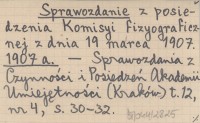 Sprawozdanie z posie-
dzenia Komisyi fizyograficz-
nej z dnia 19 marca 1907.
1907 a. — Sprawozdania z
Czynności i Posiedzeń Akademii
Umiejętności (Kraków) t. 12,
nr 4, s. 30-32.